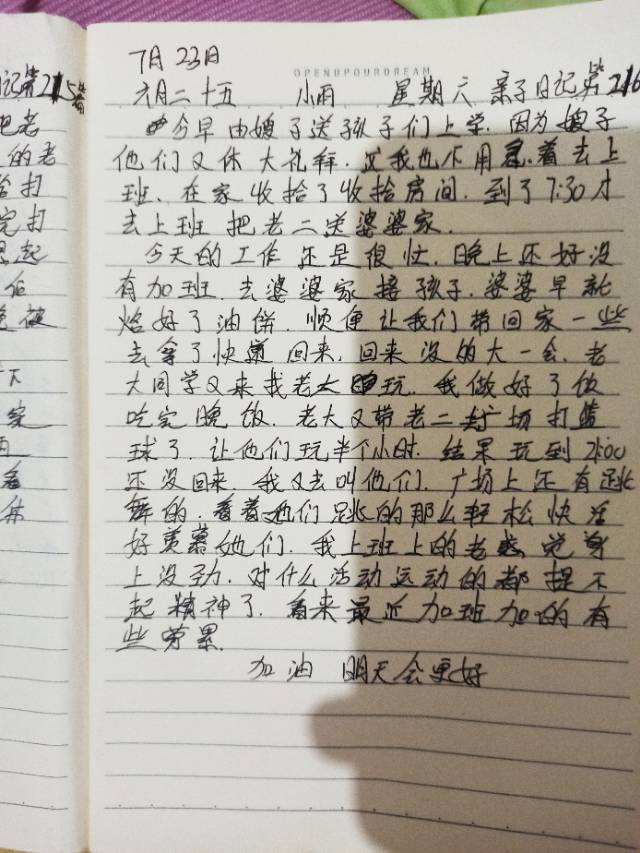 7月23日
OPENUPOURDREAM
六月二十五 小雨 星期六 亲子日记第216篇
今早由嫂子送孩子们上学.因为嫂子
他们又休大礼拜.这我也不用急着去上
班.在家收拾了收拾房间.到了7:30才
去上班把老二送婆婆家.
今天的工作还是很忙.晚上还好没
有加班.去婆婆家接孩子.婆婆早就
烙好了油饼.顺便让我们带回家一些
去拿了快递回来.回来没的大一会.老
大同学又来找老大玩.我做好了饭
吃完晚饭.老大又带老二去广场打篮
球了.让他们玩半个小时.结果玩到
还没回来.我又去叫他们.广场上还有跳
舞的.看着她们跳的那么轻松快活
好羡慕她们.我上班上的老感觉身
上没劲.对什么活动运动的都提不
起精神了.看来最近加班加的有
些劳累.
加油 明天会更好
记第215篇
把老
的老
给打
完打
思起
但
下
家
看